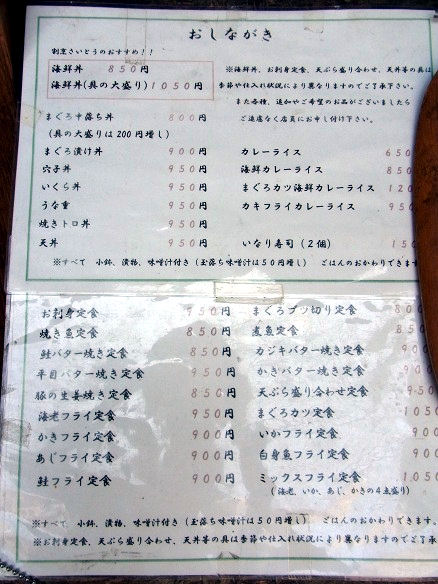 おしながき
割烹さいとうのおすすめ！！
海鮮丼 850円
海鮮丼(具の大盛り)1050円
※海鮮丼、お刺身定食、天ぷら盛り合わせ、天丼等の具は
季節や仕入れ状況により異なりますのでご了承下さい。
また各種、追加やご希望のお品がございましたら
ご遠慮なく店員にお申し付け下さい。
まぐろ中落ち丼 800円
(具の大盛りは200円増し)
まぐろ漬け丼 900円
穴子丼 950円
いくら丼 950円
うな重 950円
焼きトロ丼 950円
天丼 950円
カレーライス 650
海鮮カレーライス 850
まぐろカツ海鮮カレーライス 120
カキフライカレーライス 950
いなり寿司(2個) 150
※すべて 小鉢、漬物、味噌汁付き(玉落ち味噌汁は50円増し) ごはんのおかわりできます
お刺身定食 950円
焼き魚定食 850円
鮭バター焼き定食 850円
平目バター焼き定食 950円
豚の生姜焼き定食 850円
海老フライ定食 950円
かきフライ定食 900円
あじフライ定食 900円
鮭フライ定食 900円
まぐろブツ切り定食 800
煮魚定食
カジキバター焼き定食 900
かきバター焼き定食
天ぷら盛り合わせ定食
まぐろカツ定食 1050
いかフライ定食 900
白身魚フライ定食 900
ミックスフライ定食 1050
(海老、いか、あじ、かきの4点盛り)
※すべて 小鉢、漬物、味噌汁付き(玉落ち味噌汁は50円増し) ごはんのおかわりできます。
※お刺身定食、天ぷら盛り合わせ、天丼等の具は季節や仕入れ状況により異なりますのでご了承下さい。